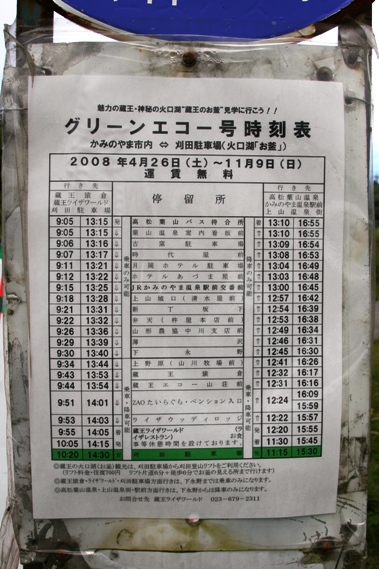 魅力の蔵王・神秘の火口湖"蔵王のお釜"見学に行こう！！
グリーンエコー号時刻表
かみのやま市内 ⇔ 刈田駐車場(火口湖「お釜」)
2008年4月26日(土)～11月9日(日)
運賃無料
行き先 停留所 行き先
蔵王猿倉 高松葉山温泉
蔵王ライザワールド かみのやま温泉駅前
刈田駐車場 上山温泉
9:05 13:15 発 高松葉山バス待合所 着 13:10 16:55
9:05 13:15 葉山温泉案内看板前 13:10 16:55
9:06 13:16 13:09 16:54
9:07 13:17 13:08 16:53
9:11 13:21 月岡ホテル駐車場 13:04 16:49
9:12 13:22 ホテルあづま屋前 13:03 16:48
9:15 13:25 JRかみのやま温泉駅前交番前 13:00 16:45
9:18 13:28 上山城口(清水屋前) 12:57 16:42
9:21 13:31 新丁坂下 12:54 16:39
9:22 13:32 弁天 12:53 16:38
9:26 13:36 山形農協中川支店前 12:49 16:34
9:29 13:39 12:46 16:31
9:30 13:40 下永野 12:45 16:30
9:34 13:44 上野原(山川牧場前) 12:41 16:26
9:43 13:53 猿倉 12:32 16:17
9:44 13:54 蔵王エコー山荘前 12:31 16:16
9:51 14:01 ZAOたいらぐら・ペンション入口 12:24 16:09
15:59
9:53 14:03 ライザウッディロッジ 12:22 15:57
9:55 14:05 着 蔵王ライザワールド (ライザレストラン) お食事等休憩時間を設けております。 発 12:20 15:55
10:05 14:15 発 着 11:30 15:45
10:20 14:30 着 刈田駐車場 発 11:15 15:30
乗車のみ可能
降車のみ可能
乗車・降車可能
◎蔵王の火口湖(お釜)観光は、刈田駐車場から刈田登山リフトをご利用ください。
(リフト料金・往復700円 リフト片道6分＋徒歩6分でお釜の見える所まで行けます)
◎蔵王猿倉・ライザワールド・刈田駐車場方面行きは、下永野までは乗車のみになります。
◎高松葉山温泉・上山温泉・駅前方面行きは、下永野からは降車のみになります。
お問合せ先 蔵王ライザワールド 023-679-2311